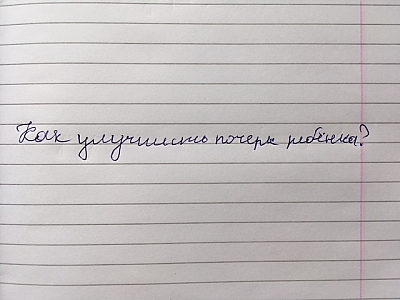 Как улучшить почерк ребёнка?